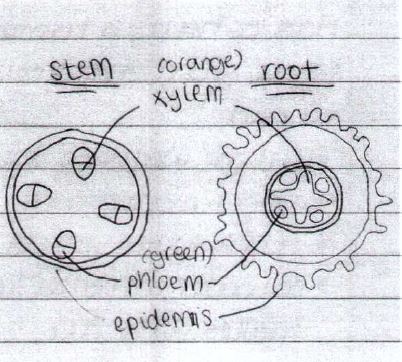 stem (orange) root
xylem
(green)
phloem
epidemis